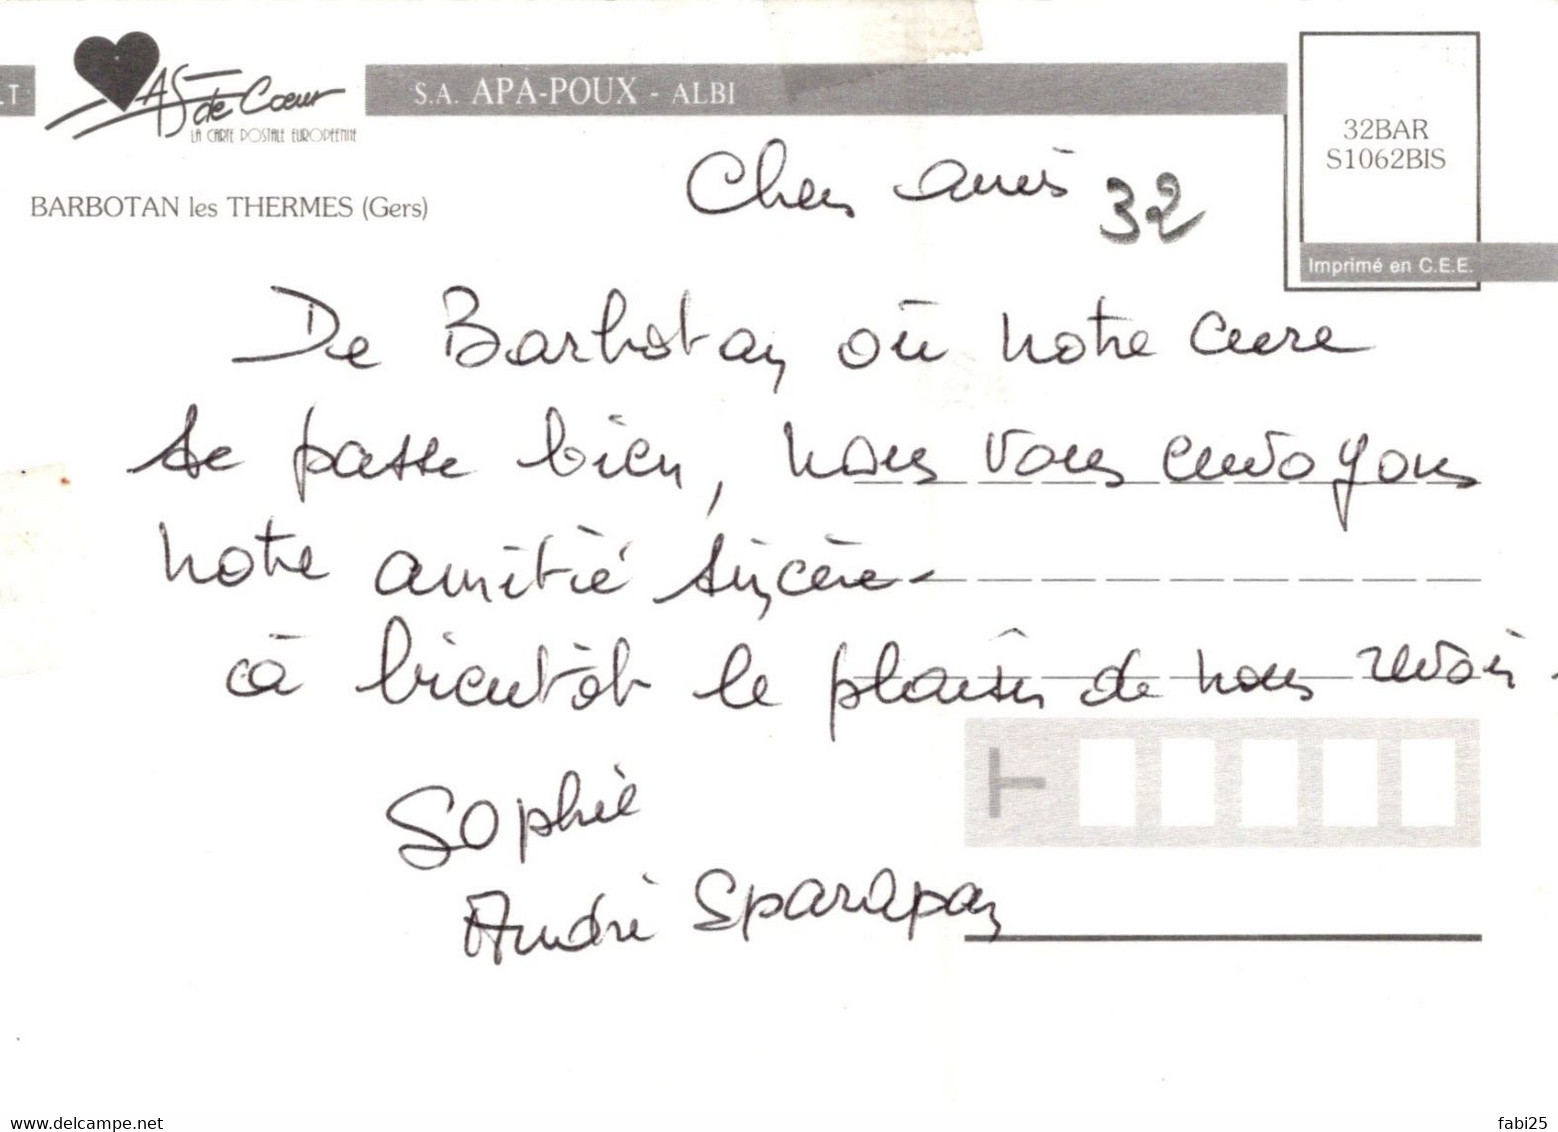 .T
AS de Cœur
LA CARTE POSTALE EUROPÉENNE
S.A. APA-POUX - ALBI
32BAR
S1062BIS
Imprimé en C.E.E.
BARBOTAN les THERMES (Gers)
Chers amis
32
De Barbotan où notre cure
se passe bien, nous vous envoyons
notre amitié sincère -
à bientôt le plaisir de nous revoir.
Sophie
André Sparapan
delcampe.net
fabi25